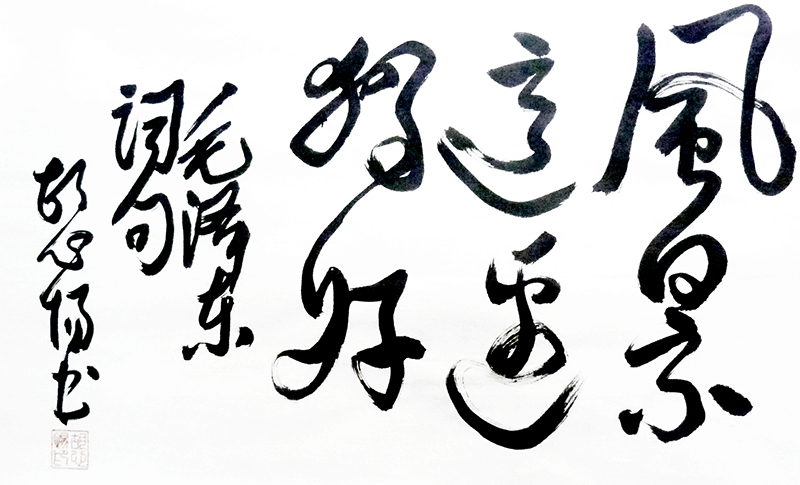 風景
這邊
獨好
毛泽东
词句
胡心杨书